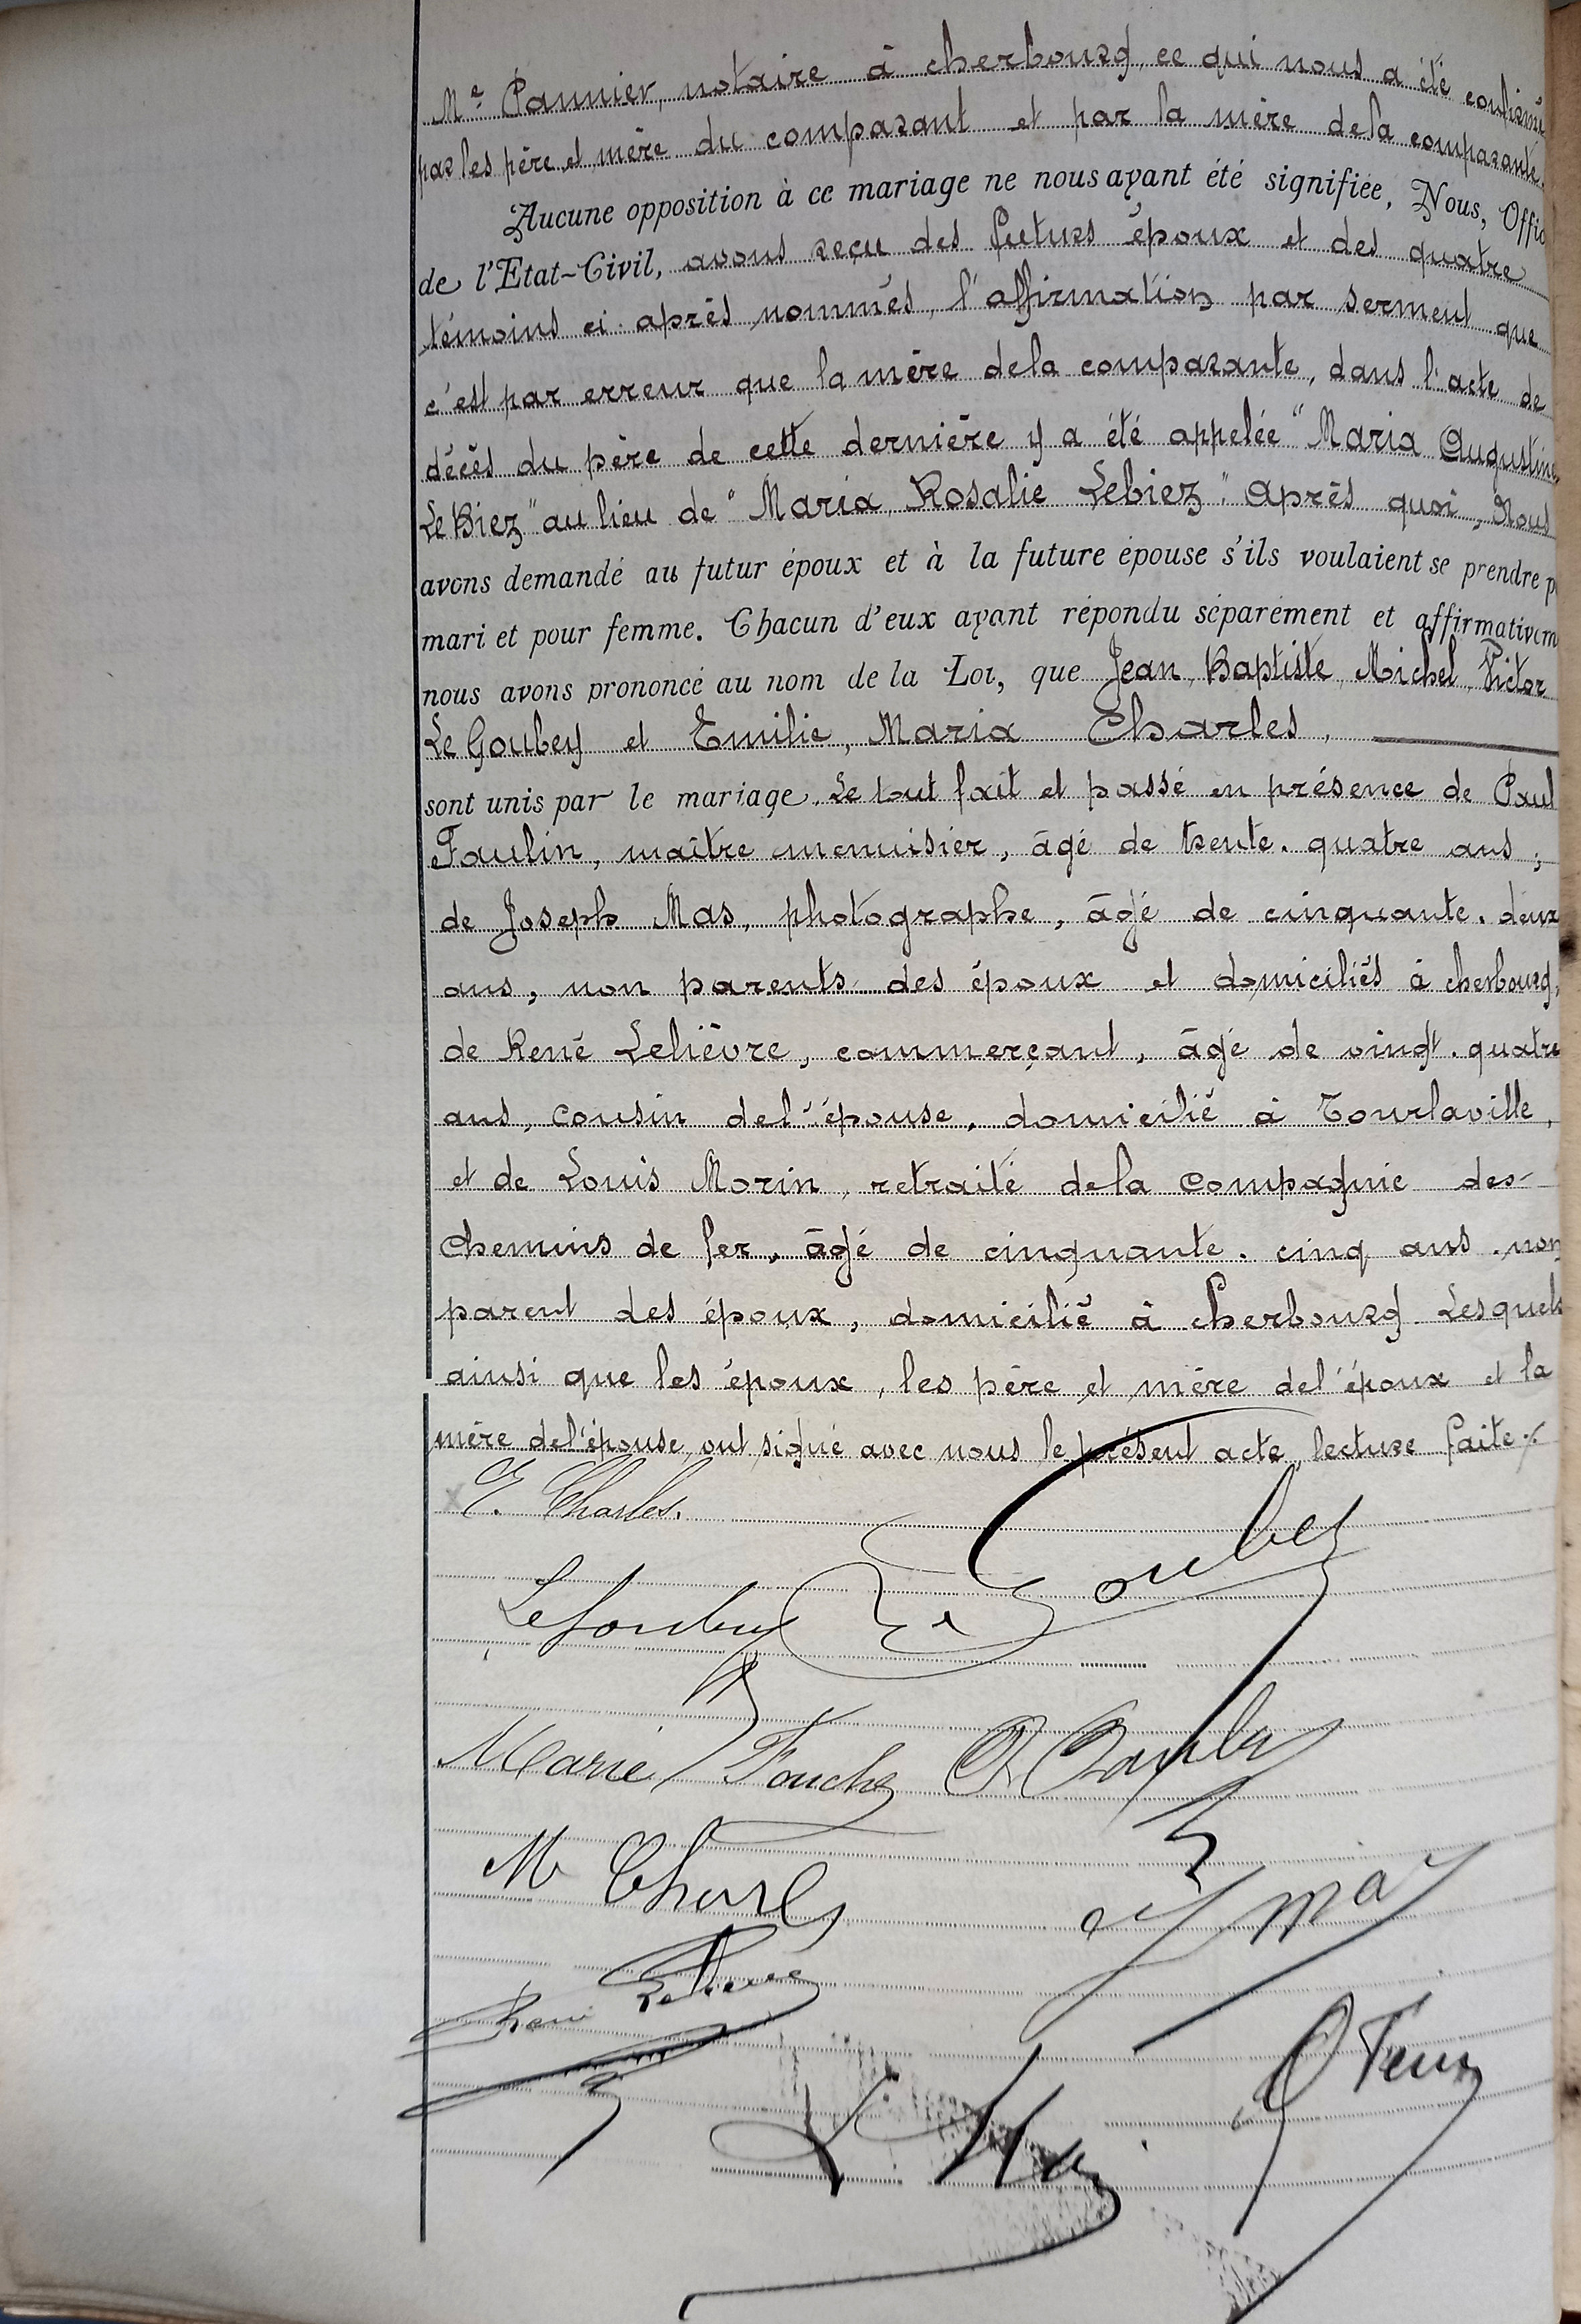 Me Pannier, notaire à cherbourg, ce qui nous a été confirmé
par les père et mère du comparant et par la mère dela comparante.
Aucune opposition à ce mariage ne nous ayant été signifiée, Nous, Offic
de l'Etat-Civil, avons reçu des futurs époux et des quatre
témoins ci-après nommés, l'affirmation par serment que
c'est par erreur que la mère dela comparante, dans l'acte de
décès du père de cette dernière y a été appelée "Maria Augustine
Le Biez" au lieu de "Maria, Rosalie Lebiez". Après quoi, Nous
avons demandé au futur époux et à la future épouse s'ils voulaient se prendre p
mari et pour femme. Chacun d'eux ayant répondu séparément et affirmativem
nous avons prononcé au nom de la Loi, que Jean, Baptiste, Michel, Victor
Le Goubey et Emilie, Maria Charles,
sont unis par le mariage. Le tout fait et passé en présence de Paul
Faulin, maître menuisier, âgé de trente-quatre ans;
de Joseph Mas, photographe, âgé de cinquante-deux
ans, non parents des époux et domiciliés à cherbourg,
de René Lelièvre, commerçant, âgé de vingt-quatre
ans, cousin del'épouse, domicilié à Tourlaville,
et de Louis Morin, retraité dela Compagnie des
Chemins de fer, âgé de cinquante-cinq ans, non
parent des époux, domicilié à Cherbourg. Lesquels
ainsi que les époux, les père et mère del'époux et la
mère del'épouse, ont signé avec nous le présent acte, lecture faite.
E. Charles.
Goubey
Le Goubey
Marie Fouche
M Charles
J Mas
René Lelievre